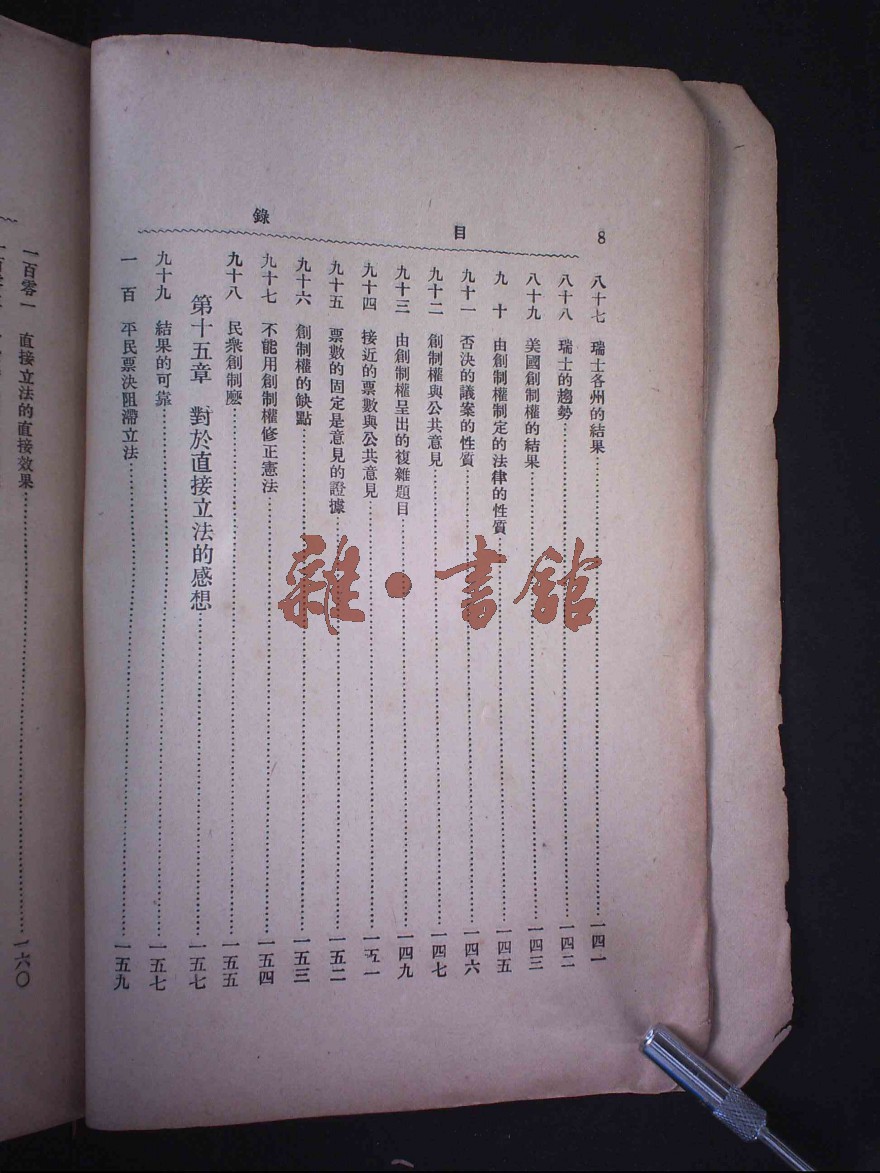 8
目
錄
八十七 瑞士各州的結果……一四一
八十八 瑞士的趨勢……一四二
八十九 美國創制權的結果……一四三
九 十 由創制權制定的法律的性質……一四五
九十一 否決的議案的性質……一四六
九十二 創制權與公共意見……一四七
九十三 由創制權呈出的複雜題目……一四九
九十四 接近的票數與公共意見……一五一
九十五 票數的固定是意見的證據……一五二
九十六 創制權的缺點……一五三
九十七 不能用創制權修正憲法……一五四
九十八 民衆創制麽……一五五
第十五章 對於直接立法的感想……一五七
九十九 結果的可靠……一五七
一 百 平民票決阻滯立法……一五九
一百零一 直接立法的直接效果……一六〇
雜·書館